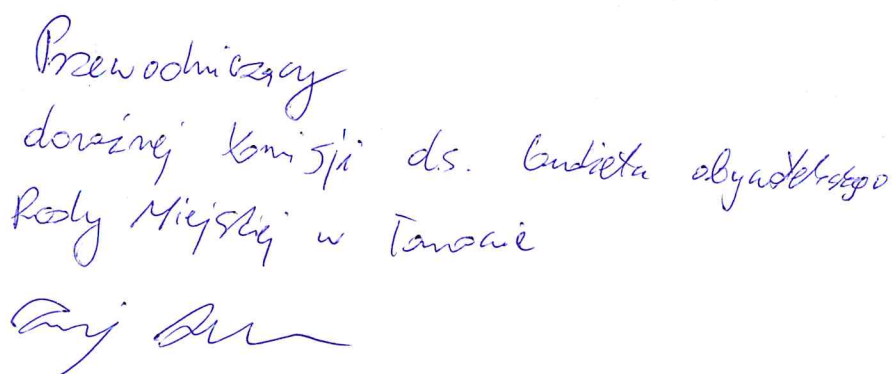 Przewodniczący
doraźnej komisji d.s. budżetu obywatelskiego
Rady Miejskiej w